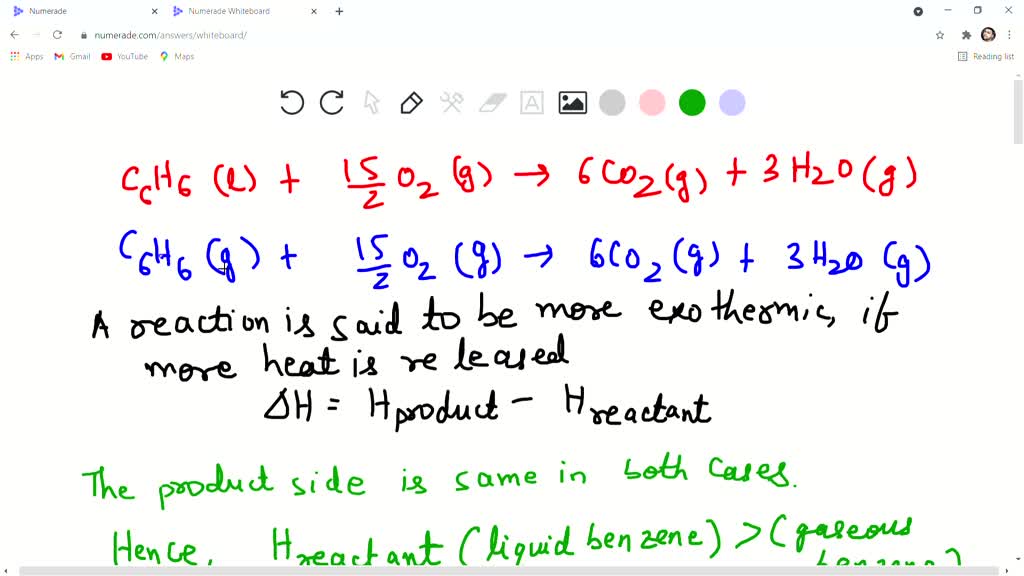 Numerade
Numerade Whiteboard
numerade.com/answers/whiteboard/
Apps Gmail YouTube Maps Reading list
A
C6H6 (l) + 15/2 O2 (g) → 6CO2 (g) + 3H2O (g)
C6H6 (g) + 15/2 O2 (g) → 6CO2 (g) + 3H2O (g)
A reaction is said to be more exothermic, if
more heat is released
ΔH = Hproduct - Hreactant
The product side is same in both cases.
Hence, Hreactant (liquid benzene) > (gaseous
benzene)